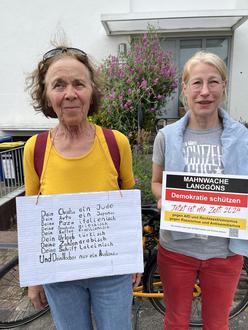 Dein Christus ein Jude
Dein Auto ein Japaner
Deine Pizza italienisch
Deine Demokratie griechisch
Dein Kaffee brasilianisch
Dein Urlaub türkisch
Deine Zahlen arabisch
Deine Schrift lateinisch
Und Dein Nachbar nur ein Ausländer?
MAHNWACHE
LANGGÖNS
Demokratie schützen
Jetzt ist die Zeit: 2024
gegen AfD und Rechtsextremismus
gegen Rassismus und Antisemitismus